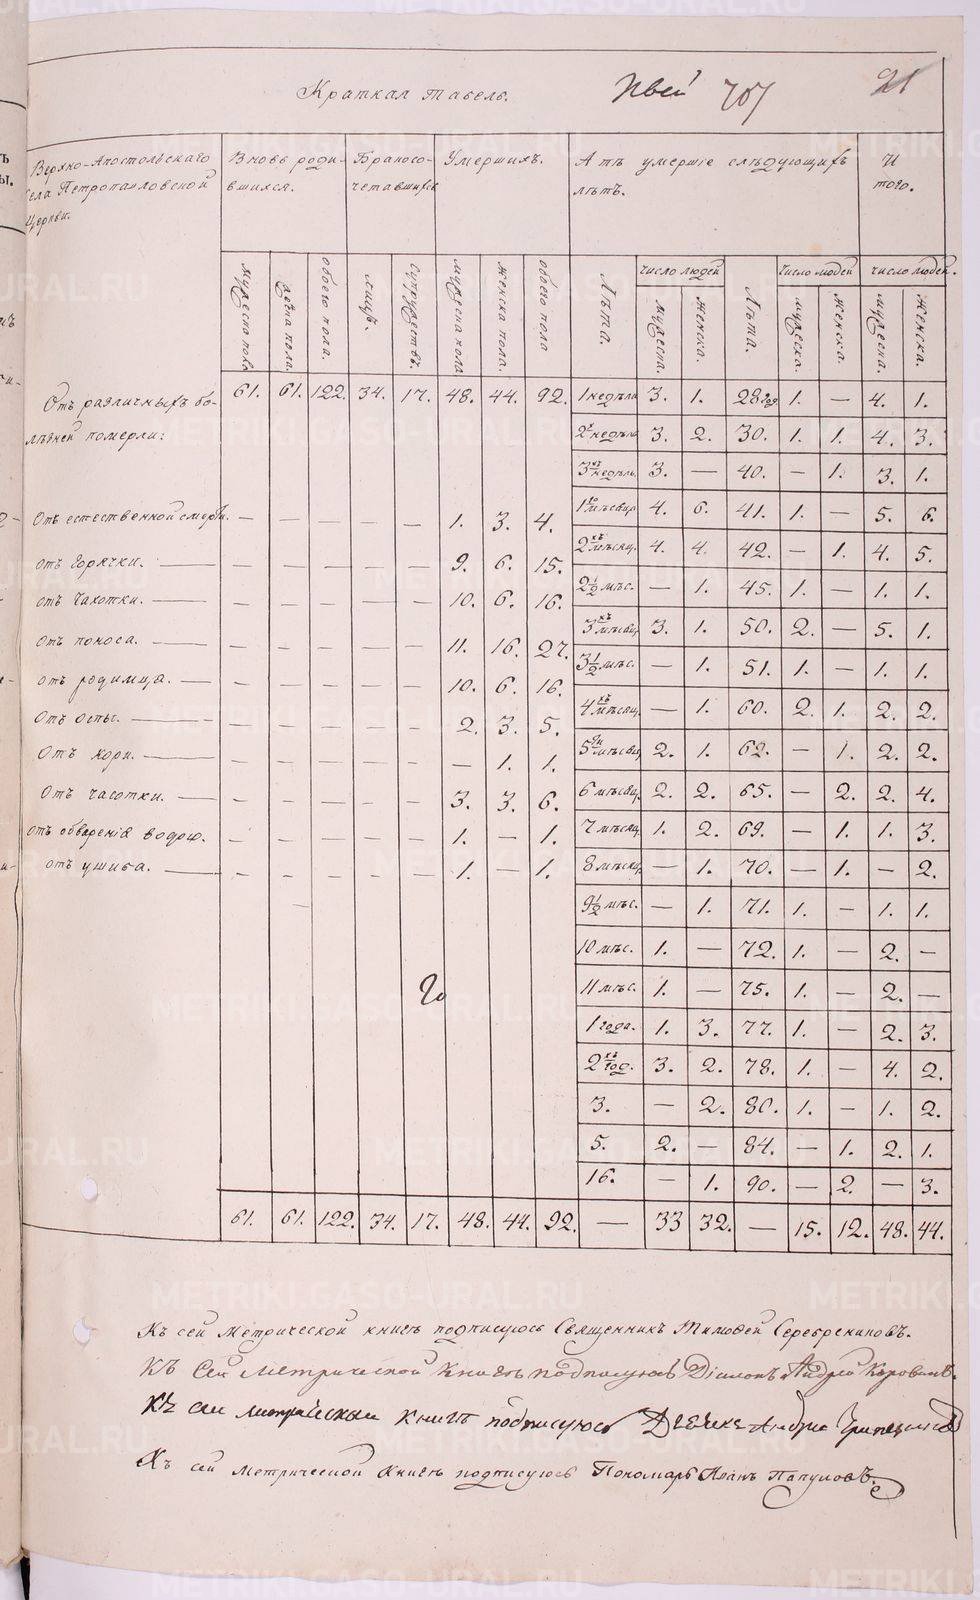 Краткая табель.
707
21
Верхно-Апостольскаго
села Петропавловской
Церкви.
Вновь роди-
вшихся.
Бракосо-
четавшихся
Умершихъ.
А тѣ умершіе слѣдующихъ
лѣтъ.
И
того.
мужеско пола
женска пола.
обоего пола.
лицъ.
супружествъ.
мужеска пола
женска пола.
обоего пола
Лѣта.
число людей
мужеска.
женска.
Лѣта.
число людей
мужеска.
женска.
число людей.
мужеска.
женска.
Отъ различныхъ бо-
лѣзней померли:
61. 61. 122. 34. 17. 48. 44. 92.
Отъ естественной смерти. — — — — — 1. 3. 4.
отъ горячки. — — — — — 9. 6. 15.
отъ чахотки. — — — — — 10. 6. 16.
отъ поноса. — — — — — 11. 16. 27.
отъ родимца. — — — — — 10. 6. 16.
Отъ оспы. — — — — — 2. 3. 5.
Отъ кори. — — — — — — 1. 1.
Отъ часотки. — — — — — 3. 3. 6.
отъ обваренія водою. — — — — — 1. — 1.
отъ ушиба. — — — — — 1. — 1.
1 недѣли 3. 1. 28 год 1. — 4. 1.
2х недѣль 3. 2. 30. 1. 1. 4. 3.
3хъ недѣль. 3. — 40. — 1. 3. 1.
1го мѣсяца 4. 6. 41. 1. — 5. 6.
2хъ мѣсяц. 4. 4. 42. — 1. 4. 5.
2½ мѣс. — 1. 45. 1. — 1. 1.
3хъ мѣсяц. 3. 1. 50. 2. — 5. 1.
3½ мѣс. — 1. 51. 1. — 1. 1.
4хъ мѣсяц. — 1. 60. 2. 1. 2. 2.
5ти мѣсяц. 2. 1. 62. — 1. 2. 2.
6 мѣсяц. 2. 2. 65. — 2. 2. 4.
7 мѣсяц. 1. 2. 69. — 1. 1. 3.
8 мѣсяц. — 1. 70. — 1. — 2.
9½ мѣс. — 1. 71. 1. — 1. 1.
10 мѣс. 1. — 72. 1. — 2. —
11 мѣс. 1. — 75. 1. — 2. —
1 года. 1. 3. 77. 1. — 2. 3.
2хъ год. 3. 2. 78. 1. — 4. 2.
3. — 2. 80. 1. — 1. 2.
5. 2. — 84. — 1. 2. 1.
16. — 1. 90. — 2. — 3.
61. 61. 122. 34. 17. 48. 44. 92. — 33 32. — 15. 12. 48. 44.
Къ сей метрической книгѣ подписуюсь Священникъ Тимофей Серебрениковъ.
Къ Сей Метрической Книгѣ подписуюсь Діаконъ Андрей Коровинъ.
Къ сей метрической книгѣ подписуюсь Дьячекъ Андрей
Къ сей метрической книгѣ подписуюсь Пономарь Иванъ Папуловъ.
METRIKI.GASO-URAL.RU